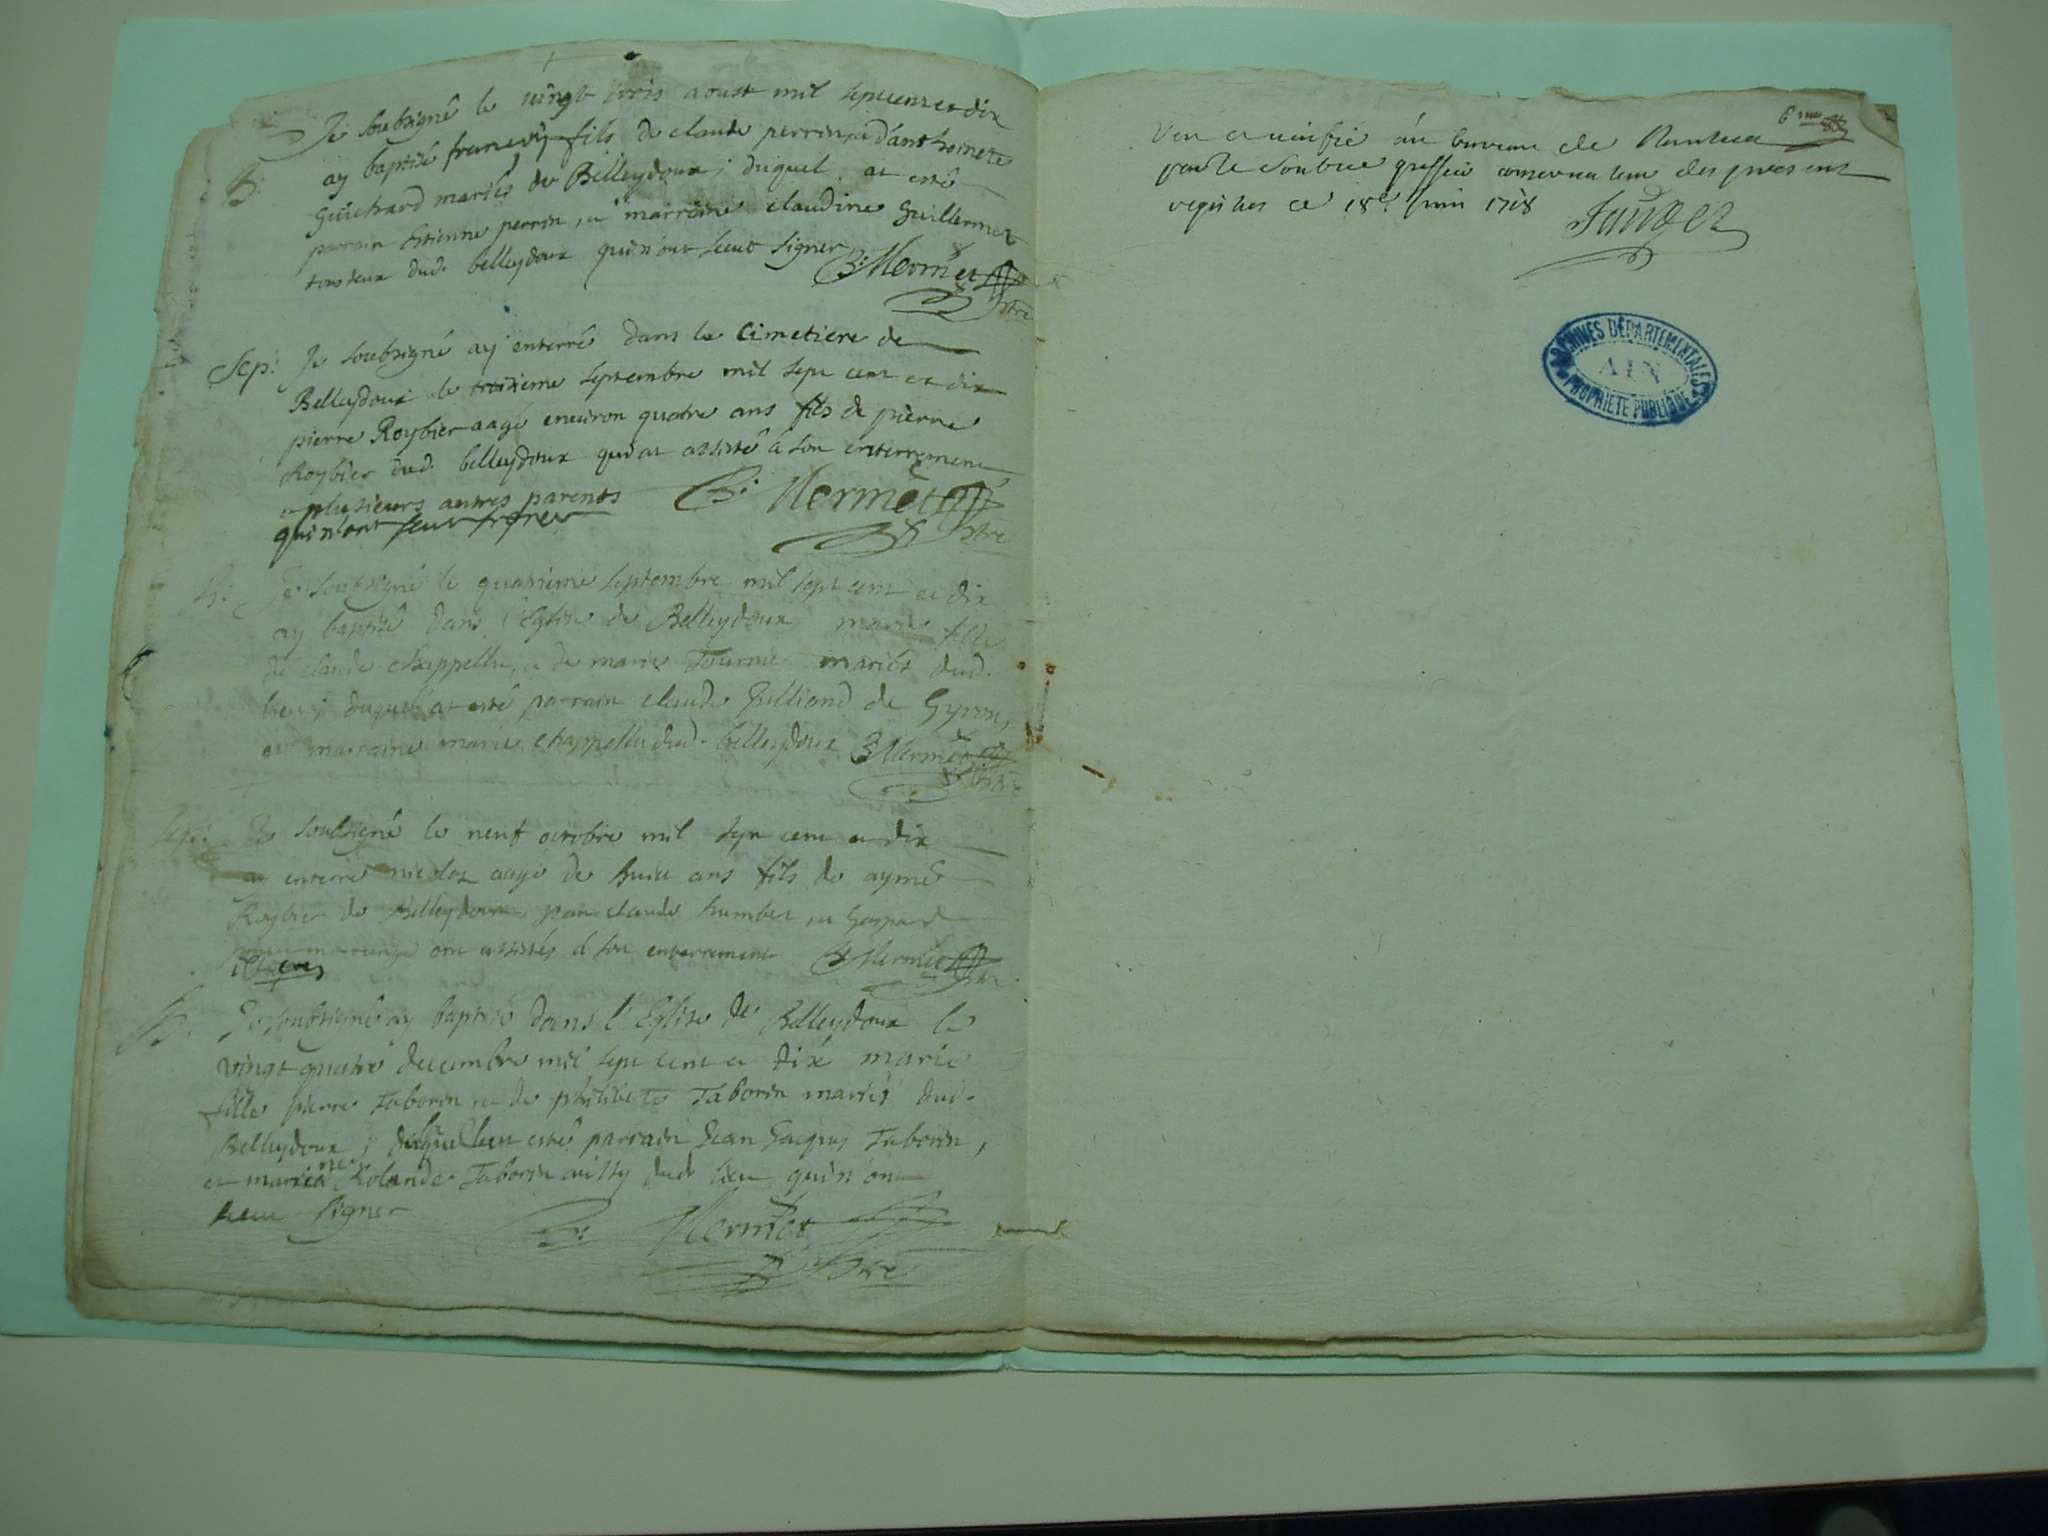 B: Je soubsigné le vingt trois aoust mil sept cent et dix
ay baptisé francois fils de claude perrin, et d'anthoinete
Guichard mariés de Belleydoux; duquel at esté
parrain Estienne perrin, et marraine claudine Guillermet
tous deux dud. belleydoux qui n'ont sceut signer B: Mermet
ptre
Sep: Je soubsigné ay enterré dans le Cimetiere de
Belleydoux le troisieme septembre mil sept cent et dix
pierre Roybier aagé environ quatre ans fils de pierre
Roybier dud. belleydoux qui at assisté à son enterrement
et plusieurs autres parents B: Mermet
qui n'ont sceut signer ptre
B: Je soubsigné le quatrieme septembre mil sept cent et dix
ay baptisé dans l'Eglise de Belleydoux marie fille
de claude chappellu, et de marie Tournier mariés dud.
lieu; duquel at esté parrain claude Julliand de Gyron,
et marraine marie chappellu dud. belleydoux B Mermet
ptre
Sep: Je soubsigné le neuf octobre mil sept cent et dix
ay enterré nicolas aagé de huict ans fils de aymé
Roybier de Belleydoux claude humbert et Gaspard
ont assistés à son enterrement B Mermet
ptre
B. Je soubsigné ay baptisé dans l'Eglise de Belleydoux le
vingt quatre decembre mil sept cent et dix marie
fille pierre Taborin et de philiberte Taborin mariés dud.
Belleydoux; duquel at esté parrain Jean Jacques Taborin,
et maraine Rolande Taborin aussy dudt lieu qui n'ont
sceu signer
B: Mermet
ptre
6me
Veu et verifié au bureau de Nantua
par le soubne greffier conservateur des presents
registres ce 18e. Juin 1718
ARCHIVES DÉPARTEMENTALES
AIN
PROPRIÉTÉ PUBLIQUE